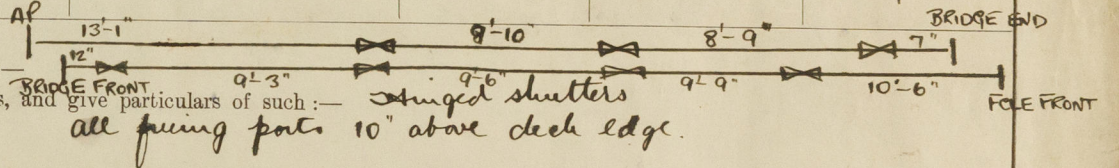 AP BRIDGE END
13'-1" 9'-10" 8'-9" 7"
12"
BRIDGE FRONT 9'-3" 9'-6" 9'-9" 10'-6" FO'LE FRONT
s, and give particulars of such :— Hinged shutters
all freeing ports 10" above deck edge.